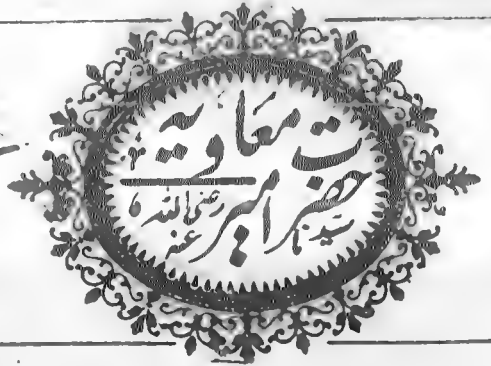 سیدنا حضرت امیر معاویہ رضی اللہ عنہ